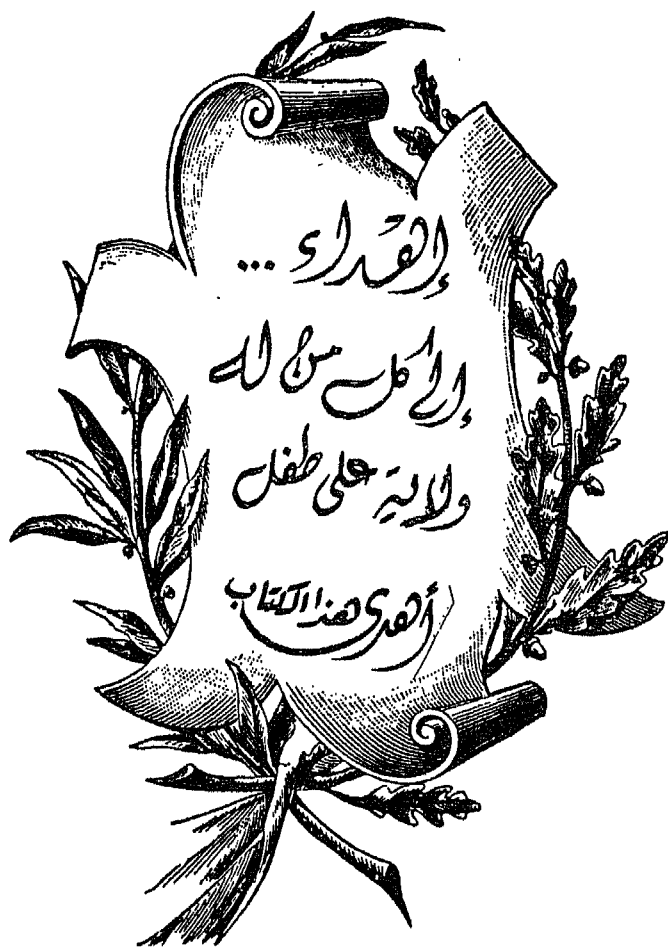 إهداء ...
إلى كل من له
ولاية على طفل
أهدى هذا الكتاب